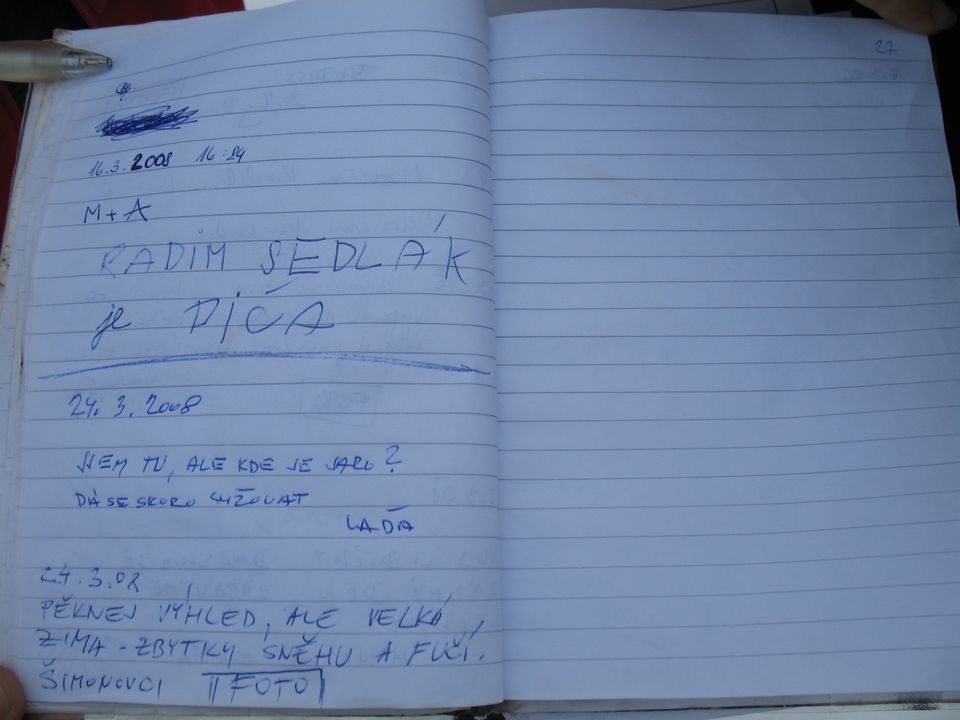 16.3.2008 16:24
M+A
RADIM SEDLÁK
je PÍČA
24. 3. 2008
JSEM TU, ALE KDE JE JARO?
DÁ SE SKORO LYŽOVAT
LAĎA
24.3.08
PĚKNEJ VÝHLED, ALE VELKÁ
ZIMA - ZBYTKY SNĚHU A FUČÍ.
ŠIMONOVCI FOTO
27